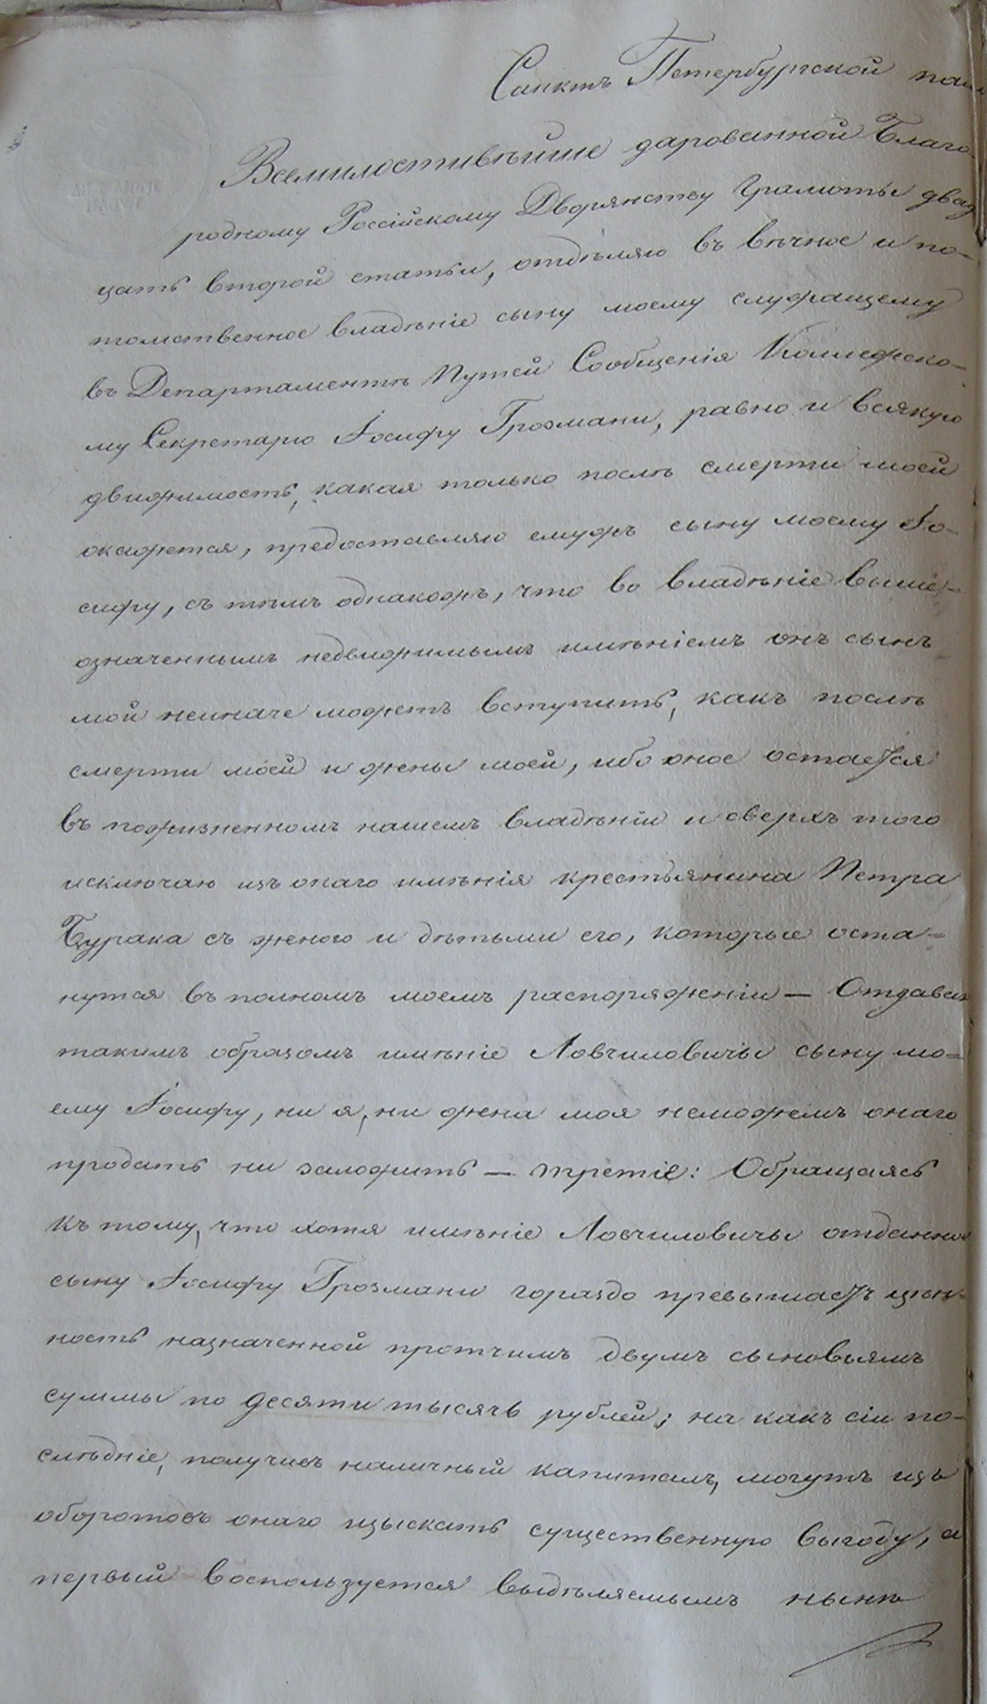 Санктъ Петербургской пол
Всемилостивѣйше дарованной Благо-
родному Россійскому Дворянству Грамоты двад
цать второй статьи, отдѣляю въ вѣчное и по-
томственное владѣніе сыну моему служащему
въ Департаментѣ Путей Сообщенія Коллежско-
му Секретарю Іосифу Грозмани, равно и всякую
движимость, какая только послѣ смерти моей
окажется, предоставляю емужъ сыну моему Іо-
сифу, съ тѣмъ однакожъ, что во владѣніе выше-
означеннымъ недвижимымъ имѣніемъ онъ сынъ
мой неиначе можетъ вступить, какъ послѣ
смерти моей и жены моей, ибо оное остается
въ пожизненномъ нашемъ владѣніи и сверхъ того
исключаю изъ онаго имѣнія крестьянина Петра
Бурака съ женою и дѣтьми его, которые оста-
нутся въ полномъ моемъ распоряженіи — Отдавая
такимъ образомъ имѣніе Ловчиловичи сыну мо-
ему Іосифу, ни я, ни жена моя неможемъ онаго
продать ни заложить — третіе: Обращаясь
къ тому, что хотя имѣніе Ловчиловичи отданное
сыну Іосифу Грозмани гораздо превышаетъ цѣн-
ность назначенной протчимъ двумъ сыновьямъ
суммы по десяти тысячь рублей; но какъ сіи по-
слѣдніе, получивъ наличный капиталъ, могутъ изъ
оборотовъ онаго изыскать существенную выгоду, а
первый воспользуется выдѣляемымъ нынѣ